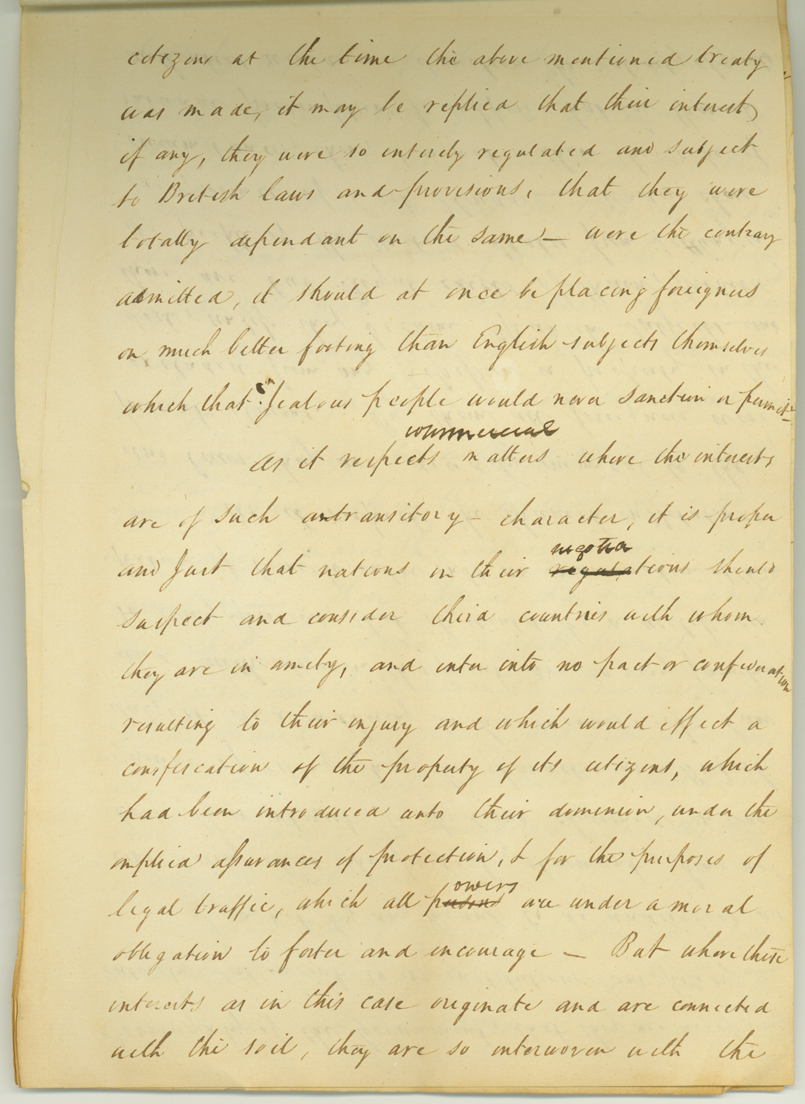 citizens at the time the above mentioned treaty
was made, it may be replied that their interest,
if any, they were so entirely regulated and subject
to British laws and provisions, that they were
totally dependant on the same — were the contrary
admitted, it should at once be placing foreigners
on much better footing than English subjects themselves
which that Jealous people would never sanction or permit —
commercial
as it respects matters where the interests
are of such a transitory character, it is proper
negotia
and Just that nations in their regulations should
suspect and consider third countries with whom
they are in amety, and enter into no pact or confederation
resulting to their injury and which would effect a
confiscation of the property of its citizens, which
had been introduced unto their dominion, under the
implied assurances of protection, & for the purposes of
owers
legal traffic, which all p are under a moral
obligation to foster and encourage — But where these
interests as in this case originate and are connected
with the soil, they are so interwoven with the